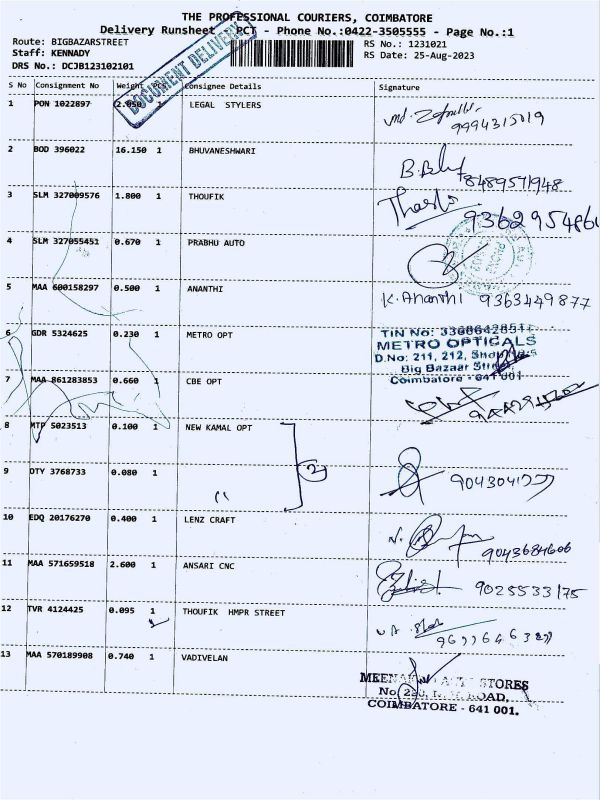 THE PROFESSIONAL COURIERS, COIMBATORE
Delivery Runsheet - PCT - Phone No.:0422-3505555 - Page No.:1
Route: BIGBAZARSTREET RS No.: 1231021
Staff: KENNADY RS Date: 25-Aug-2023
DRS No.: DCJB123102101
DOCUMENT DELIVERY
S No Consignment No Weight PCS Consignee Details Signature
1 PON 1022897 2.050 1 LEGAL STYLERS
9994315019
2 BOD 396022 16.150 1 BHUVANESHWARI
8489571948
3 SLM 327009576 1.800 1 THOUFIK
9362954861
4 SLM 327055451 0.670 1 PRABHU AUTO
5 MAA 600158297 0.500 1 ANANTHI K. Ananthi 9363449877
6 GDR 5324625 0.230 1 METRO OPT
TIN No:
METRO OPTICALS
D.No: 211, 212,
Big Bazaar
Coimbatore - 641 001
7 MAA 861283853 0.660 1 CBE OPT
8 MTP 5023513 0.100 1 NEW KAMAL OPT
2
9 OTY 3768733 0.080 1 "
10 EDQ 20176270 0.400 1 LENZ CRAFT
9043684606
11 MAA 571659518 2.600 1 ANSARI CNC
9025533175
12 TVR 4124425 0.095 1 THOUFIK HMPR STREET
13 MAA 570189908 0.740 1 VADIVELAN
STORES
ROAD,
COIMBATORE - 641 001.